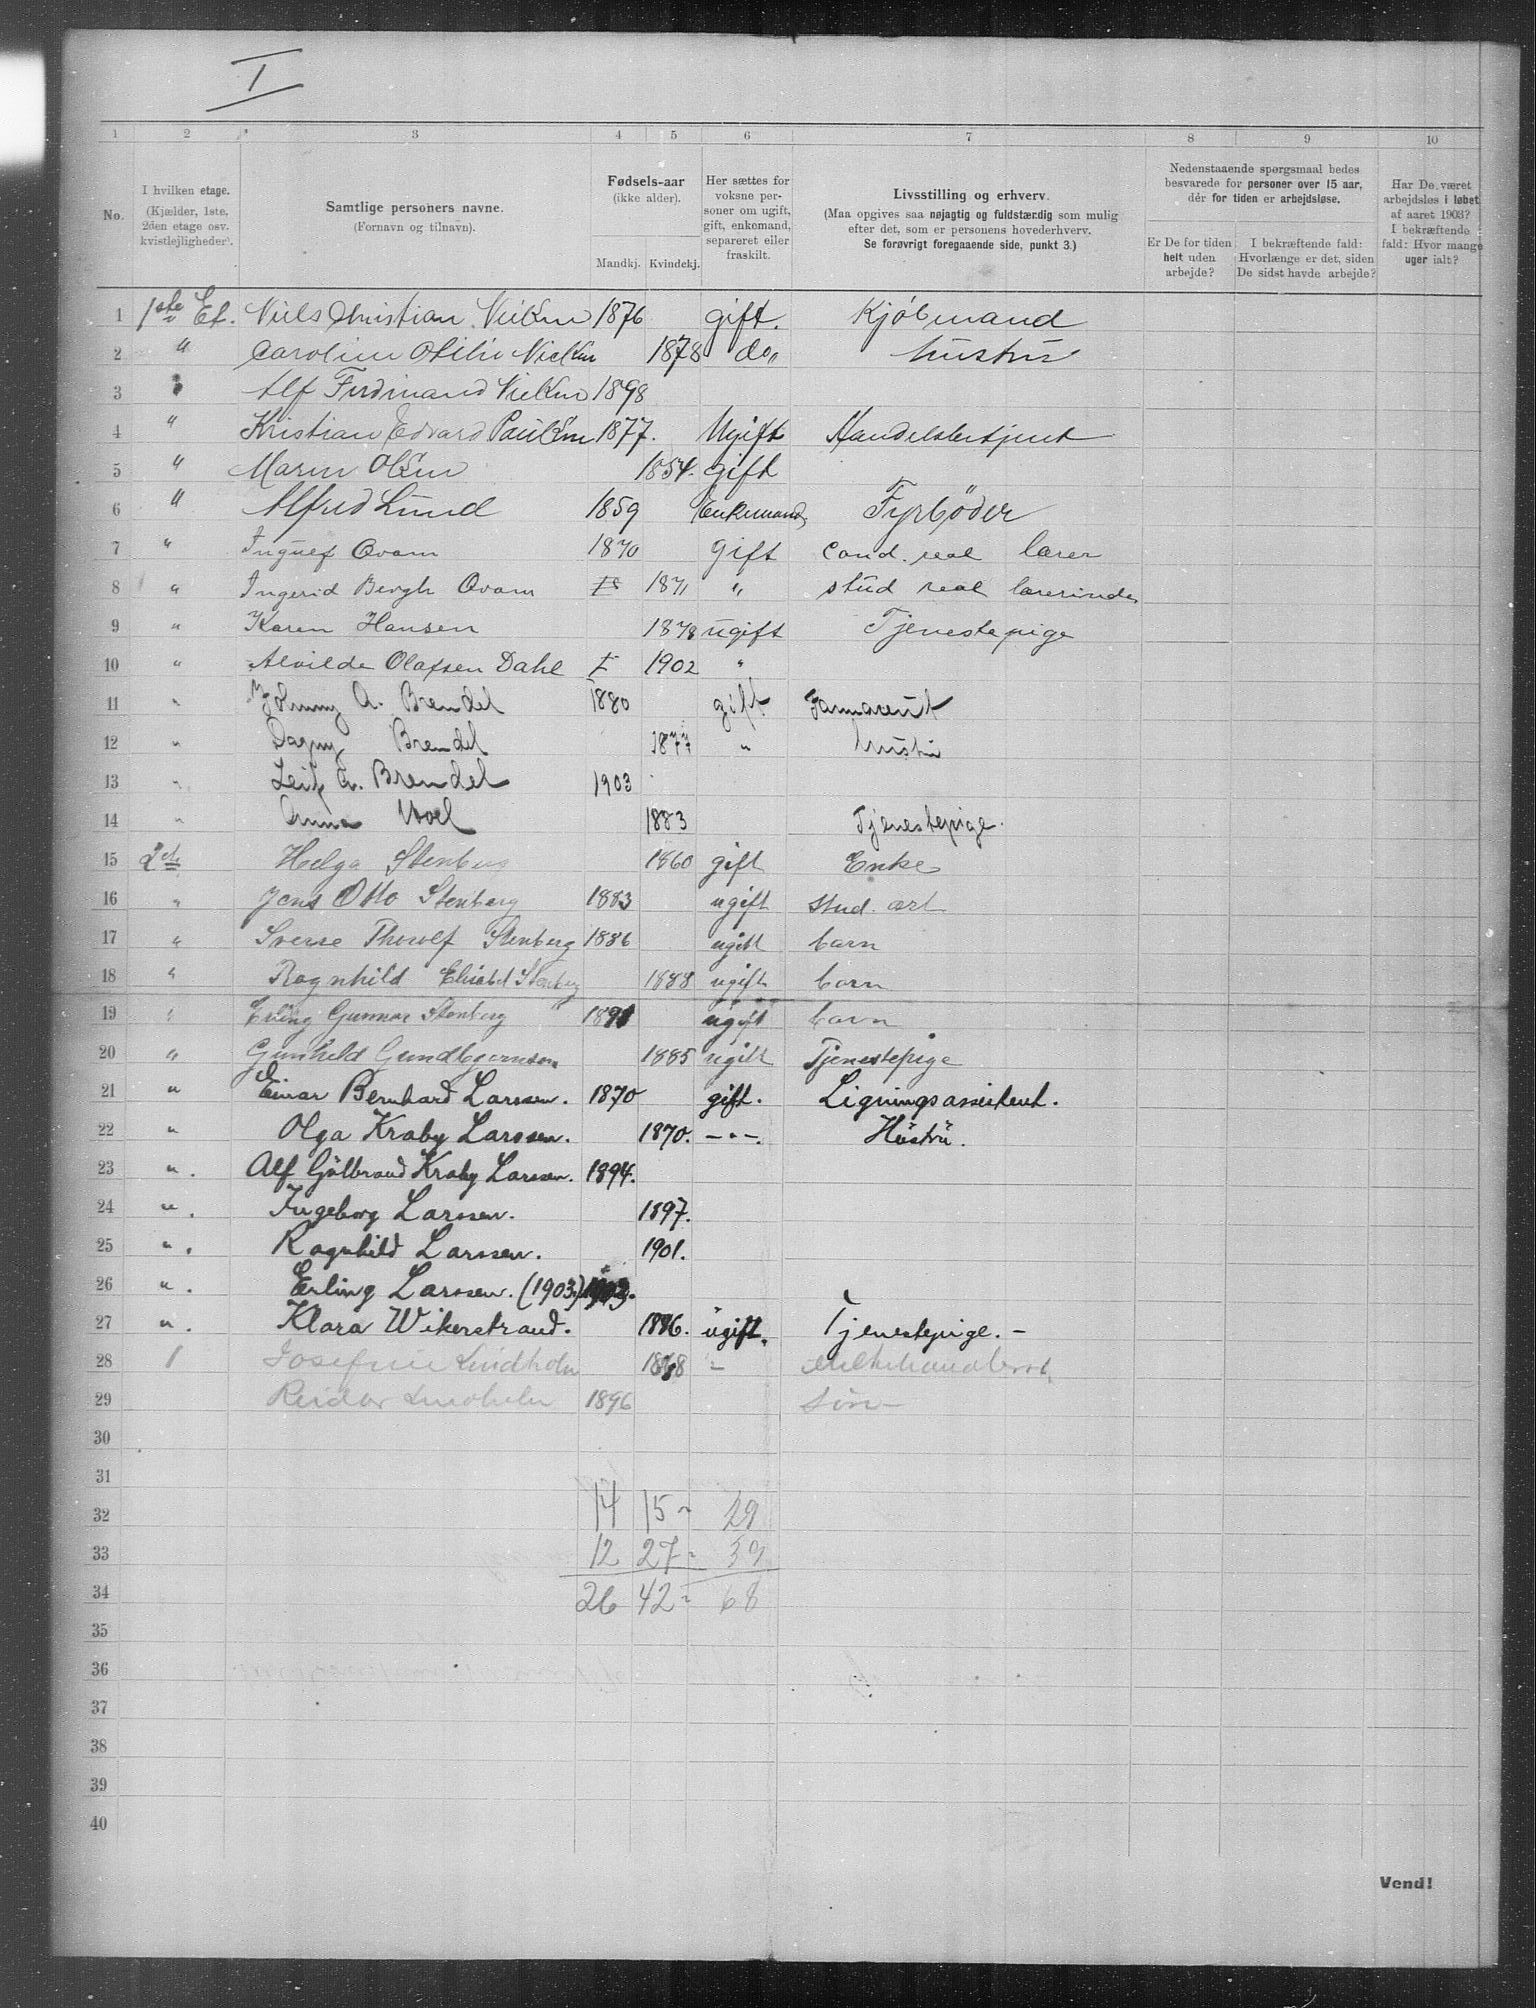 I
1 2 3 4 5 6 7 8 9 10
No.
I hvilken etage. (Kjælder, 1ste, 2den etage osv. kvistlejligheder).
Samtlige personers navne. (Fornavn og tilnavn).
Fødsels-aar (ikke alder).
Mandkj. Kvindekj.
Her sættes for voksne personer om ugift, gift, enkemand, separeret eller fraskilt.
Livsstilling og erhverv.
(Maa opgives saa nøjagtig og fuldstærdig som mulig efter det, som er personens hovederhverv.
Se forøvrigt foregaaende side, punkt 3.)
Nedenstaaende spørgsmaal bedes besvarede for personer over 15 aar, dér for tiden er arbejdsløse.
Er De for tiden helt uden arbejde?
I bekræftende fald: Hvorlænge er det, siden De sidst havde arbejde?
Har De været arbejdsløs i løbet af aaret 1903? I bekræftende fald: Hvor mange uger ialt?
1 1ste Et. Niels Christian Nielsen 1876 gift. Kjøbmand
2 " Caroline Otilie Nielsen 1878 do" hustru
3 " Alf Ferdinand Nielsen 1898
4 " Kristian Edvard Paulsen 1877. Ugift Handelsbetjent
5 " Maren Olsen 1854. gift
6 " Alfred Lund 1859 Enkemand, Fyrbøder
7 " Ingulf Qvam 1870 gift cand. real lærer
8 " Ingerid Bergh Qvam 1871 " stud real lærerinde
9 " Karen Hansen 1878 ugift Tjenestepige
10 " Alvilde Olafsen Dahl 1902 "
11 " Johnny A. Brendel 1880 gift
12 " Dagny Brendel 1877 " hustru
13 " Leif A. Brendel 1903
14 " Anna 1883 Tjenestepige.
15 2 et. Helga Stenberg 1860 gift Enke
16 " Jens Otto Stenberg 1883 ugift stud. art
17 " Sverse Thorolf Stenberg 1886 ugift barn
18 " Ragnhild Elisabet Stenberg 1888 ugift barn
19 " Erling Gunnar Stenberg 1891 ugift barn
20 " Gunhild Gundbjørnsen 1885 ugift Tjenestepige
21 " Einar Bernhard Larssen. 1870 gift. Ligningsassistent.
22 " Olga Kraby Larssen. 1870. -"-. Hustru.
23 ". Alf Gulbrand Kraby Larssen. 1894.
24 ". Ingeborg Larssen. 1897.
25 ". Ragnhild Larssen. 1901.
26 ". Erling Larssen. (1903) 1903.
27 ". Klara Wikerstrand. 1886. ugift. Tjenestepige. -
28 Josefine Lindholm 1868 - melkehandlerske
29 Reidar Lindholm 1896 Søn
30
31
32 14 15 - 29
33 12 27 - 39
34 26 42 - 68
35
36
37
38
39
40
Vend!